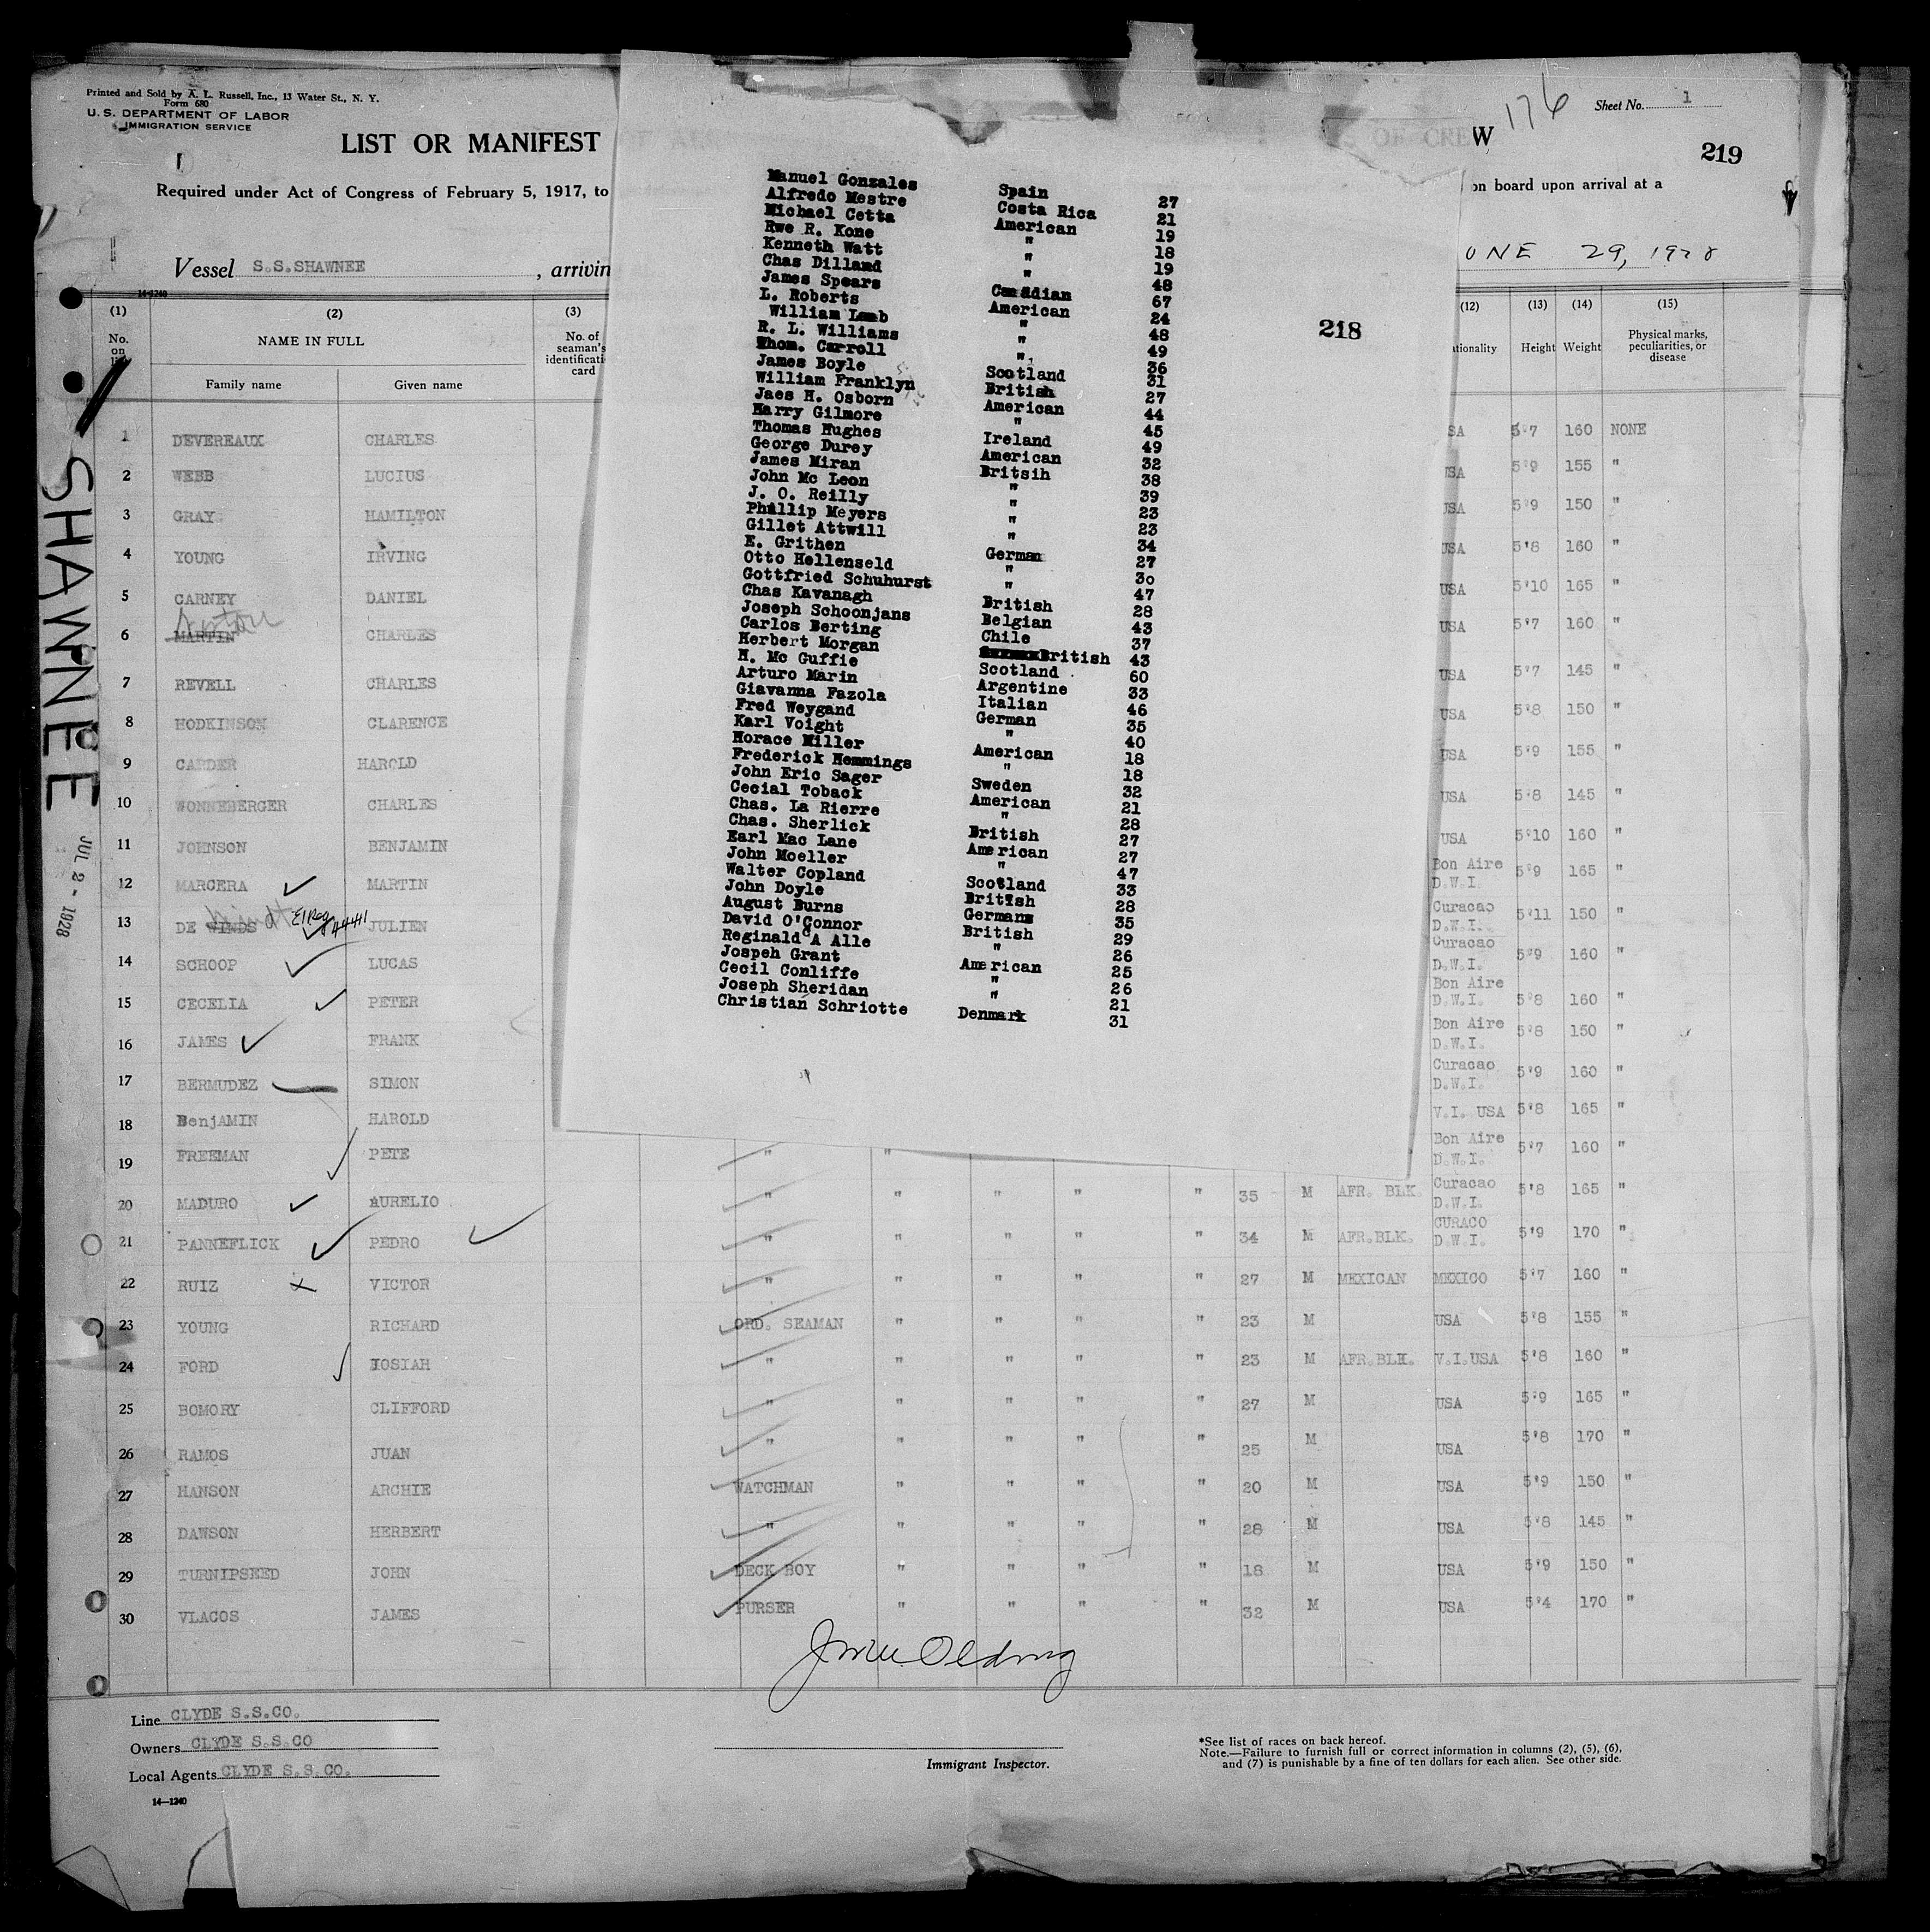 Printed and Sold by A. L. Russell, Inc., 13 Water St., N. Y.
Form 680
U. S. DEPARTMENT OF LABOR
IMMIGRATION SERVICE
LIST OR MANIFEST
W
176
Sheet No. 1
219
Required under Act of Congress of February 5, 1917, to
on board upon arrival at a
Vessel S.S.SHAWNEE , arrivin
UNE 29, 1928
14-1240
(1) (2) (3) (12) (13) (14) (15)
No. on NAME IN FULL No. of seaman's identificati card tionality Height Weight Physical marks, peculiarities, or disease
Family name Given name
Manuel Gonzales Spain 27
Alfredo Mestre Costa Rica 21
Michael Cetta American 19
Rwe R. Kone " 18
Kenneth Watt " 19
Chas Dilland " 48
James Spears Canadian 67
L. Roberts American 24
William Lamb " 48
R. L. Williams " 49
Thom. Carroll " 36
James Boyle Scotland 31
William Franklyn British 27
Jaes H. Osborn American 44
Harry Gilmore " 45
Thomas Hughes Ireland 49
George Durey American 32
James Miran Britsih 38
John Mc Leon " 39
J. O. Reilly " 23
Phillip Meyers " 23
Gillet Attwill " 34
E. Grithen German 27
Otto Hellenseld " 30
Gottfried Schuhurst " 47
Chas Kavanagh British 28
Joseph Schoonjans Belgian 43
Carlos Berting Chile 37
Herbert Morgan British 43
H. Mc Guffie Scotland 60
Arturo Marin Argentine 33
Giavanna Fazola Italian 46
Fred Weygand German 35
Karl Voight " 40
Horace Miller American 18
Frederick Hemmings " 18
John Eric Sager Sweden 32
Cecial Toback American 21
Chas. La Rierre " 28
Chas. Sherlick British 27
Earl Mac Lane American 27
John Moeller " 47
Walter Copland Scotland 33
John Doyle British 28
August Burns Germans 35
David O'Connor British 29
Reginald A Alle " 26
Jospeh Grant American 25
Cecil Conliffe " 26
Joseph Sheridan " 21
Christian Schriotte Denmark 31
218
SHAWNEE
JUL 2 - 1928
1 DEVEREAUX CHARLES SA 5'7 160 NONE
2 WEBB LUCIUS USA 5'9 155 "
3 GRAY HAMILTON USA 5'9 150 "
4 YOUNG IRVING USA 5'8 160 "
5 CARNEY DANIEL USA 5'10 165 "
6 MARTIN CHARLES USA 5'7 160 "
7 REVELL CHARLES USA 5'7 145 "
8 HODKINSON CLARENCE USA 5'8 150 "
9 CARDER HAROLD USA 5'9 155 "
10 WONNEBERGER CHARLES USA 5'8 145 "
11 JOHNSON BENJAMIN USA 5'10 160 "
12 MARCERA MARTIN Bon Aire D.W.I. 5'9 165 "
13 DE WINDS JULIEN Curacao D.W.I. 5'11 150 "
14 SCHOOP LUCAS Curacao D.W.I. 5'9 160 "
15 CECELIA PETER Bon Aire D.W.I. 5'8 160 "
16 JAMES FRANK Bon Aire D.W.I. 5'8 150 "
17 BERMUDEZ SIMON Curacao D.W.I. 5'9 160 "
18 BenjAMIN HAROLD V.I. USA 5'8 165 "
19 FREEMAN PETE " " Bon Aire D.W.I. 5'7 160 "
20 MADURO AURELIO " " " " " 35 M AFR. BLK. Curacao D.W.I. 5'8 165 "
21 PANNEFLICK PEDRO " " " " " 34 M AFR.BLK. CURACO D.W.I. 5'9 170 "
22 RUIZ VICTOR " " " " " 27 M MEXICAN MEXICO 5'7 160 "
23 YOUNG RICHARD ORD. SEAMAN " " " " 23 M USA 5'8 155 "
24 FORD IOSIAH " " " " " 23 M AFR.BLK. V.I.USA 5'8 160 "
25 BOMORY CLIFFORD " " " " " 27 M USA 5'9 165 "
26 RAMOS JUAN " " " " " 25 M USA 5'8 170 "
27 HANSON ARCHIE WATCHMAN " " " " 20 M USA 5'9 150 "
28 DAWSON HERBERT " " " " " 28 M USA 5'8 145 "
29 TURNIPSEED JOHN DECK BOY " " " " 18 M USA 5'9 150 "
30 VLACOS JAMES PURSER " " " " 32 M USA 5'4 170 "
Line CLYDE S.S.CO.
Owners CLYDE S.S.CO
Local Agents CLYDE S.S.CO.
14—1240
Immigrant Inspector.
*See list of races on back hereof.
Note.—Failure to furnish full or correct information in columns (2), (5), (6),
and (7) is punishable by a fine of ten dollars for each alien. See other side.